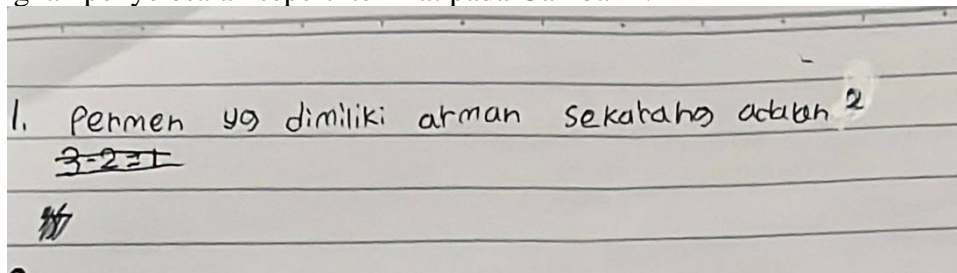 1. Permen yg dimiliki arman sekarang adalah 2
3-2=1